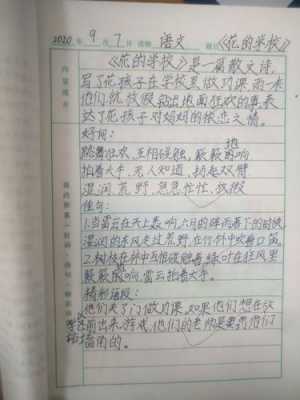 2020年 9 月 7 日 课题 语文 《花的学校》
《花的学校》是一篇散文诗,
写了花孩子在学校里做功课,雨一来
他们就放假 地面狂欢的事,表
达了花孩子对妈妈的依恋之情。
好词:
跳舞狂欢、互相碰触、簌簌地响
拍着大手、无人知道、扬起双臂
湿润、荒野、急急忙忙、放假
佳句:
1.当雷云在天上轰响,六月的阵雨落下的时候,
湿润的东风走过荒野,在竹林中吹着口笛。
2.树枝在林中互相碰触着,绿叶在狂风里
簌簌地响,雷云拍着大手。
精彩片段:
他们关了门做功课,如果他们想在放
学以前出来游戏,他们的老师是要罚他们
站墙角的。